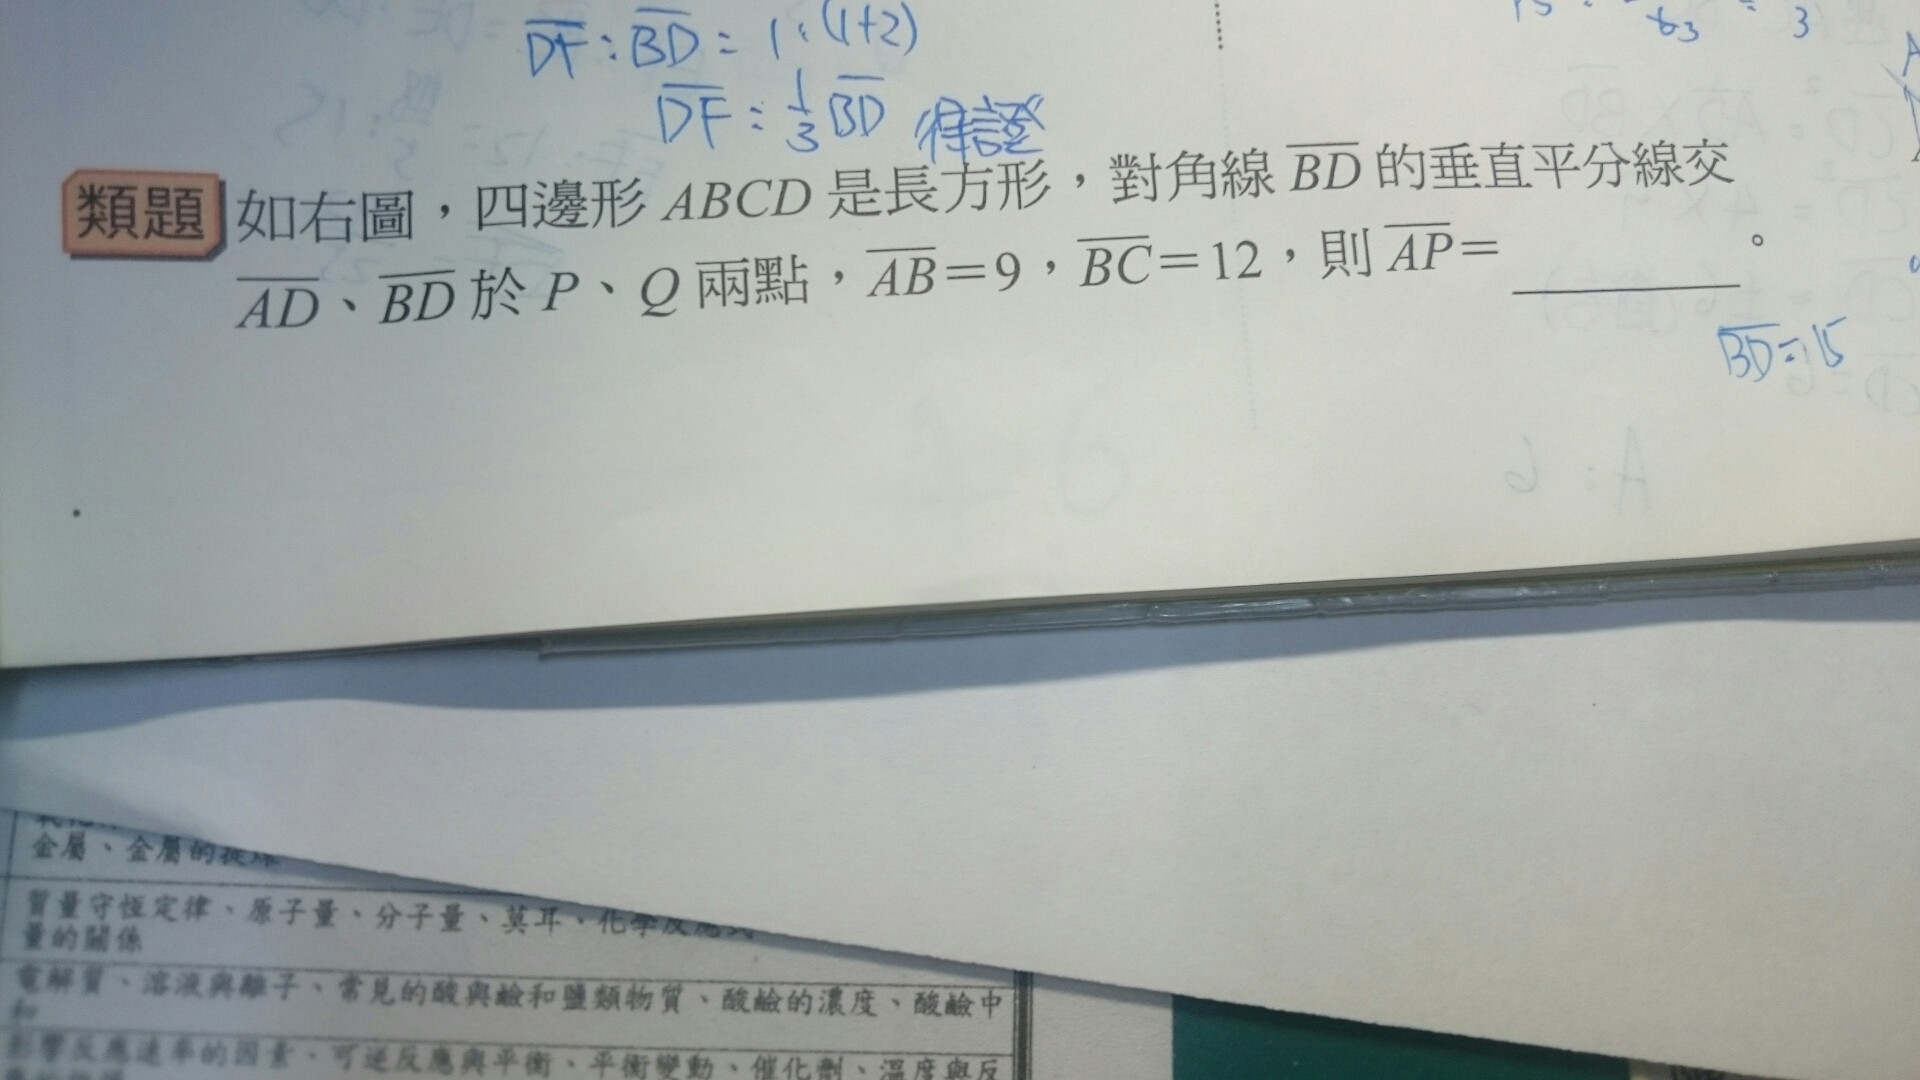 DF : BD = 1 : (1+2)
DF = 1/3 BD 得證
類題 如右圖，四邊形 ABCD 是長方形，對角線 BD 的垂直平分線交
AD、BD 於 P、Q 兩點，AB=9，BC=12，則 AP=＿＿＿＿。
BD=15
金屬、金屬的提煉
質量守恆定律、原子量、分子量、莫耳、化學反應式
量的關係
電解質、溶液與離子、常見的酸與鹼和鹽類物質、酸鹼的濃度、酸鹼中
和
影響反應速率的因量、可逆反應與平衡、平衡變動、催化劑、溫度與反